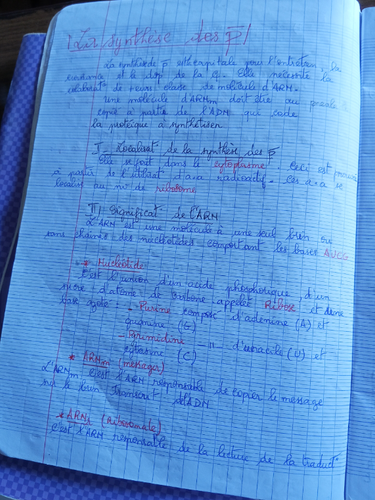 La synthèse des p̄
La synthèse de p̄ est capitale pour l'entretien, la
croissance et le dvpt de la C. Elle nécessite la
collaborat° de +eurs classe de molécule d'ARN.
Une molécule d'ARNm doit être au préalable
copié à partir de l'ADN qui code
la protéique à synthétiser
I - Localisat° de la synthèse des p̄
Elle se fait dans le cytoplasme. Ceci est
à partir de l'utilisat° d'a.a radioactif. Ces a.a se
localisent au nv de ribosome
II) Significat° de l'ARN
L'ARN est une molécule à une seul brin ou
sans chaînes des nucléotides comportant les bases AUCG
* Nucléotide
Est l'union d'un acide phosphorique, d'un
sucre à atome de carbone appelé Ribose, et d'une
base azoté : - Purine composé d'adénine (A) et
guanine (G)
- Pyrimidine - n - d'uracile (U) et
cytosine (C)
* ARNm (messager)
L'ARNm c'est l'ARN responsable de copier le message
sur le brin transcrit d'ADN.
* ARNr (Ribosomale)
C'est l'ARN responsable de la lecture de la traduct°